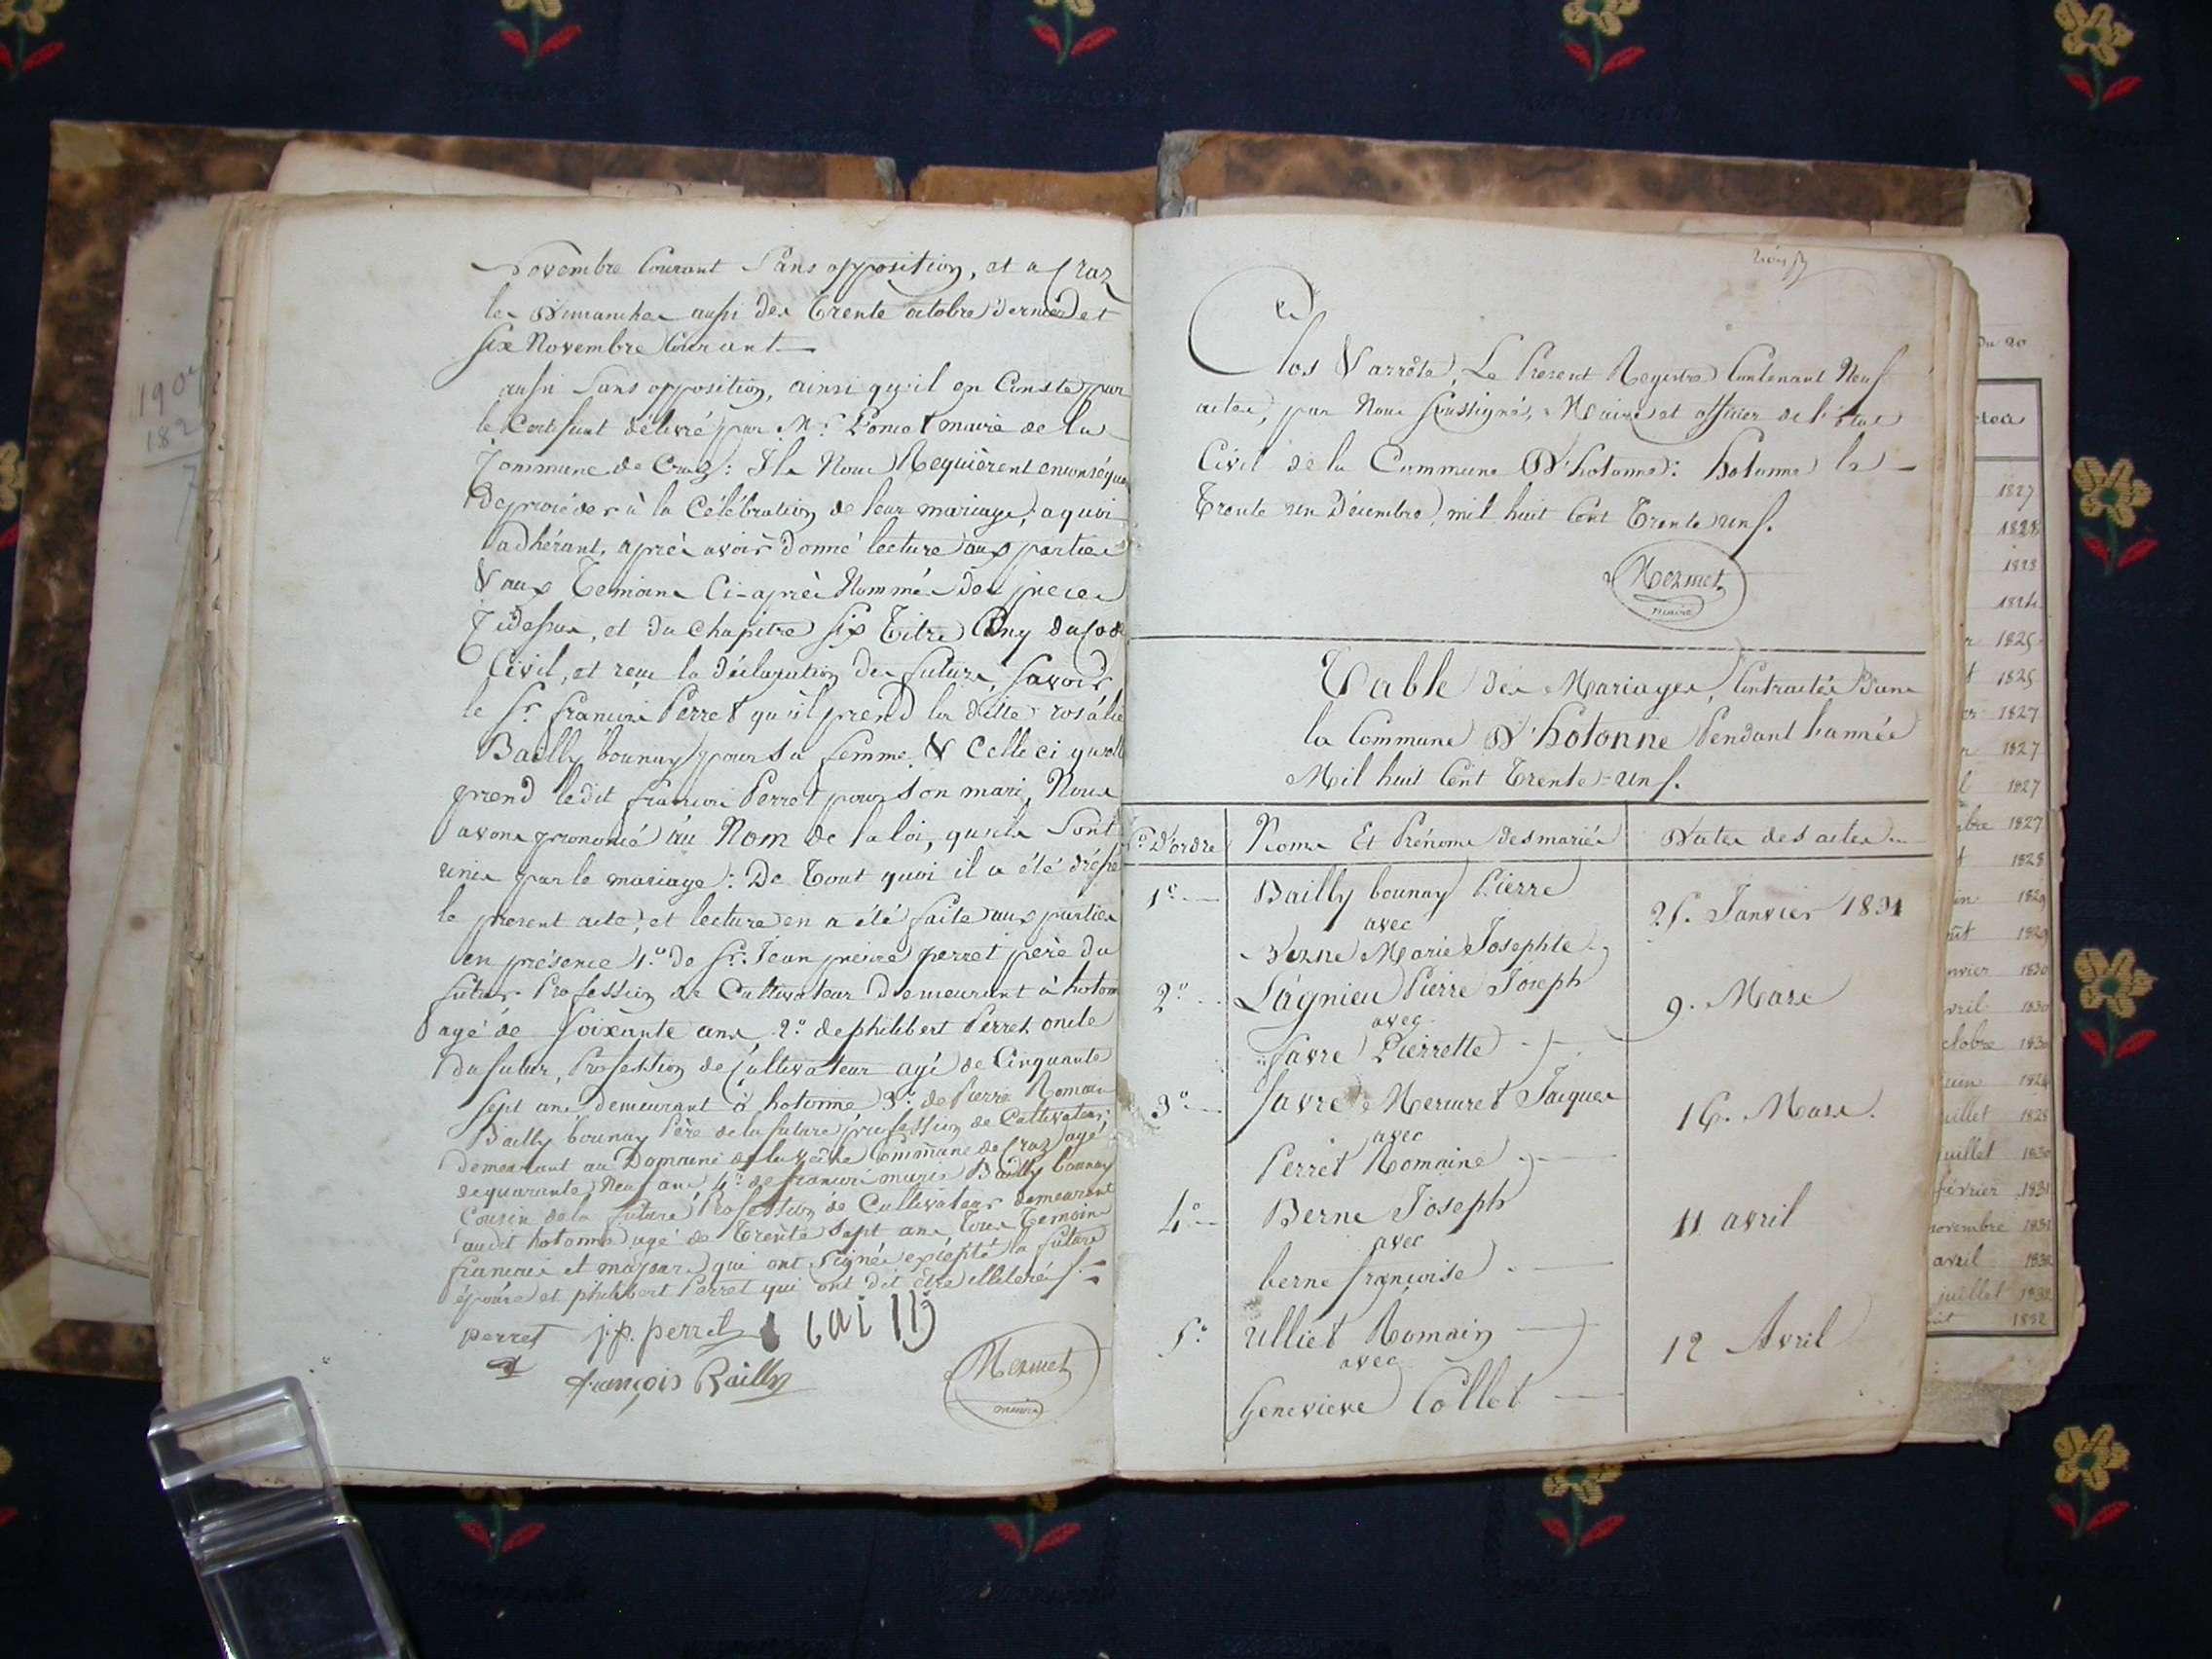 Novembre Courant Sans opposition, et a Craz
les Dimanches aussi des Trente octobre dernier et
six Novembre Courant
aussi Sans opposition, ainsi qu'il en Conste par
le Certificat délivré par Mr. Poncet maire de la
Commune de Craz: Ils Nous Requièrent en conséque
De procéder à la Célébration de leur mariage, a quoi
adhérant, après avoir donné lecture aux parties
& aux Temoins Ci-après Nommés des pieces
Cidessus, et du Chapitre six Titre Cinq du Code
Civil, et reçu la déclaration des futurs, savoir
le Sr. françois Perret qu'il prend la ditte rosalie
Bailly bounay pour sa femme & Celle ci qu'elle
prend ledit françois Perret pour son mari, Nous
avons prononcé au Nom de la loi, qu'ils Sont
unis par le mariage: De Tout quoi il a été dressé
le present acte, et lecture en a été faite aux parties
en présence 1.o de Sr. Jean pierre perret père du
futur Profession de Cultivateur Demeurant à hotonn
agé de Soixante ans 2.o de philibert Perret oncle
du futur, Profession de Cultivateur agé de Cinquante
sept ans demeurant à hotonne 3.o de Pierre Romain
Bailly bounay Père de la future profession de Cultivateur
demeurant au Domaine de la Commune de Craz agé
de quarante Neuf ans 4.o de francois marie Bailly bounay
Cousin de la future Profession de Cultivateur demeurant
audit hotonne agé de Trente sept ans, Tous Temoins
francais et majeurs qui ont signés excepté la future
épouse et philibert Perret qui ont dit être illiterés
perret j.p. perret
françois Bailly
Mermet
maire
Clos & arrêté, Le Present Registre Contenant Neuf
actes, par Nous soussigné, Maire et officier de l'état
Civil de la Commune D'hotonne: hotonne le
Trente un Décembre, mil huit Cent Trente un.
Mermet
maire
Table des Mariages, Contractés Dans
la Commune D'hotonne Pendant l'année
Mil huit Cent Trente-un.
No. D'ordre Noms Et Prénoms des mariés Dates des actes
1o Bailly bounay Pierre
avec
25. Janvier 1831
Berne Marie Josephte
2o Lagnieu Pierre Joseph
9. Mars
avec
favre Pierrette
3o favre Mermet Jacques
16. Mars.
avec
Perret Romaine
4o Berne Joseph
11 avril
avec
berne françoise
5o Ulliet Romain
12 Avril
avec
Genevieve Collet
Du 20
1827
1828
1828
1824
1825
1825
1827
1827
1827
1827
1828
1829
1829
nvier 1830
vril 1830
ctobre 1830
1824
uillet 1828
uillet 1830
février 1831
novembre 1831
avril 1832
juillet 1832
1832
190
182